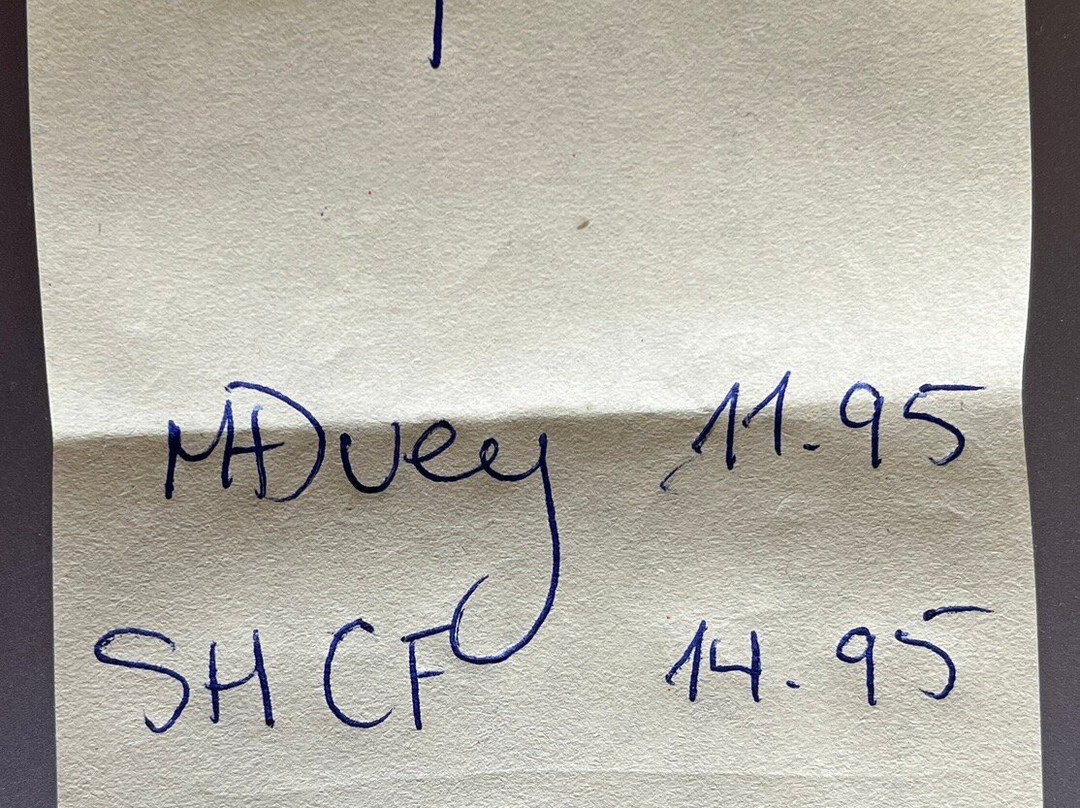 11.95
SH CF 14.95